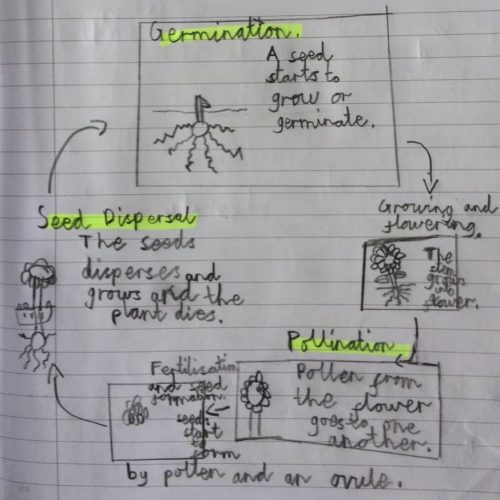 Germination.
A seed
starts to
grow or
germinate.
Growing and
flowering.
The
stem
grows
into
flower.
Pollination
Pollen from
the flower
goes to one
another.
Fertilisation
and seed
formation.
seeds
start
to
form
by pollen and an ovule.
Seed Dispersal
The seeds
disperses and
grows and the
plant dies.